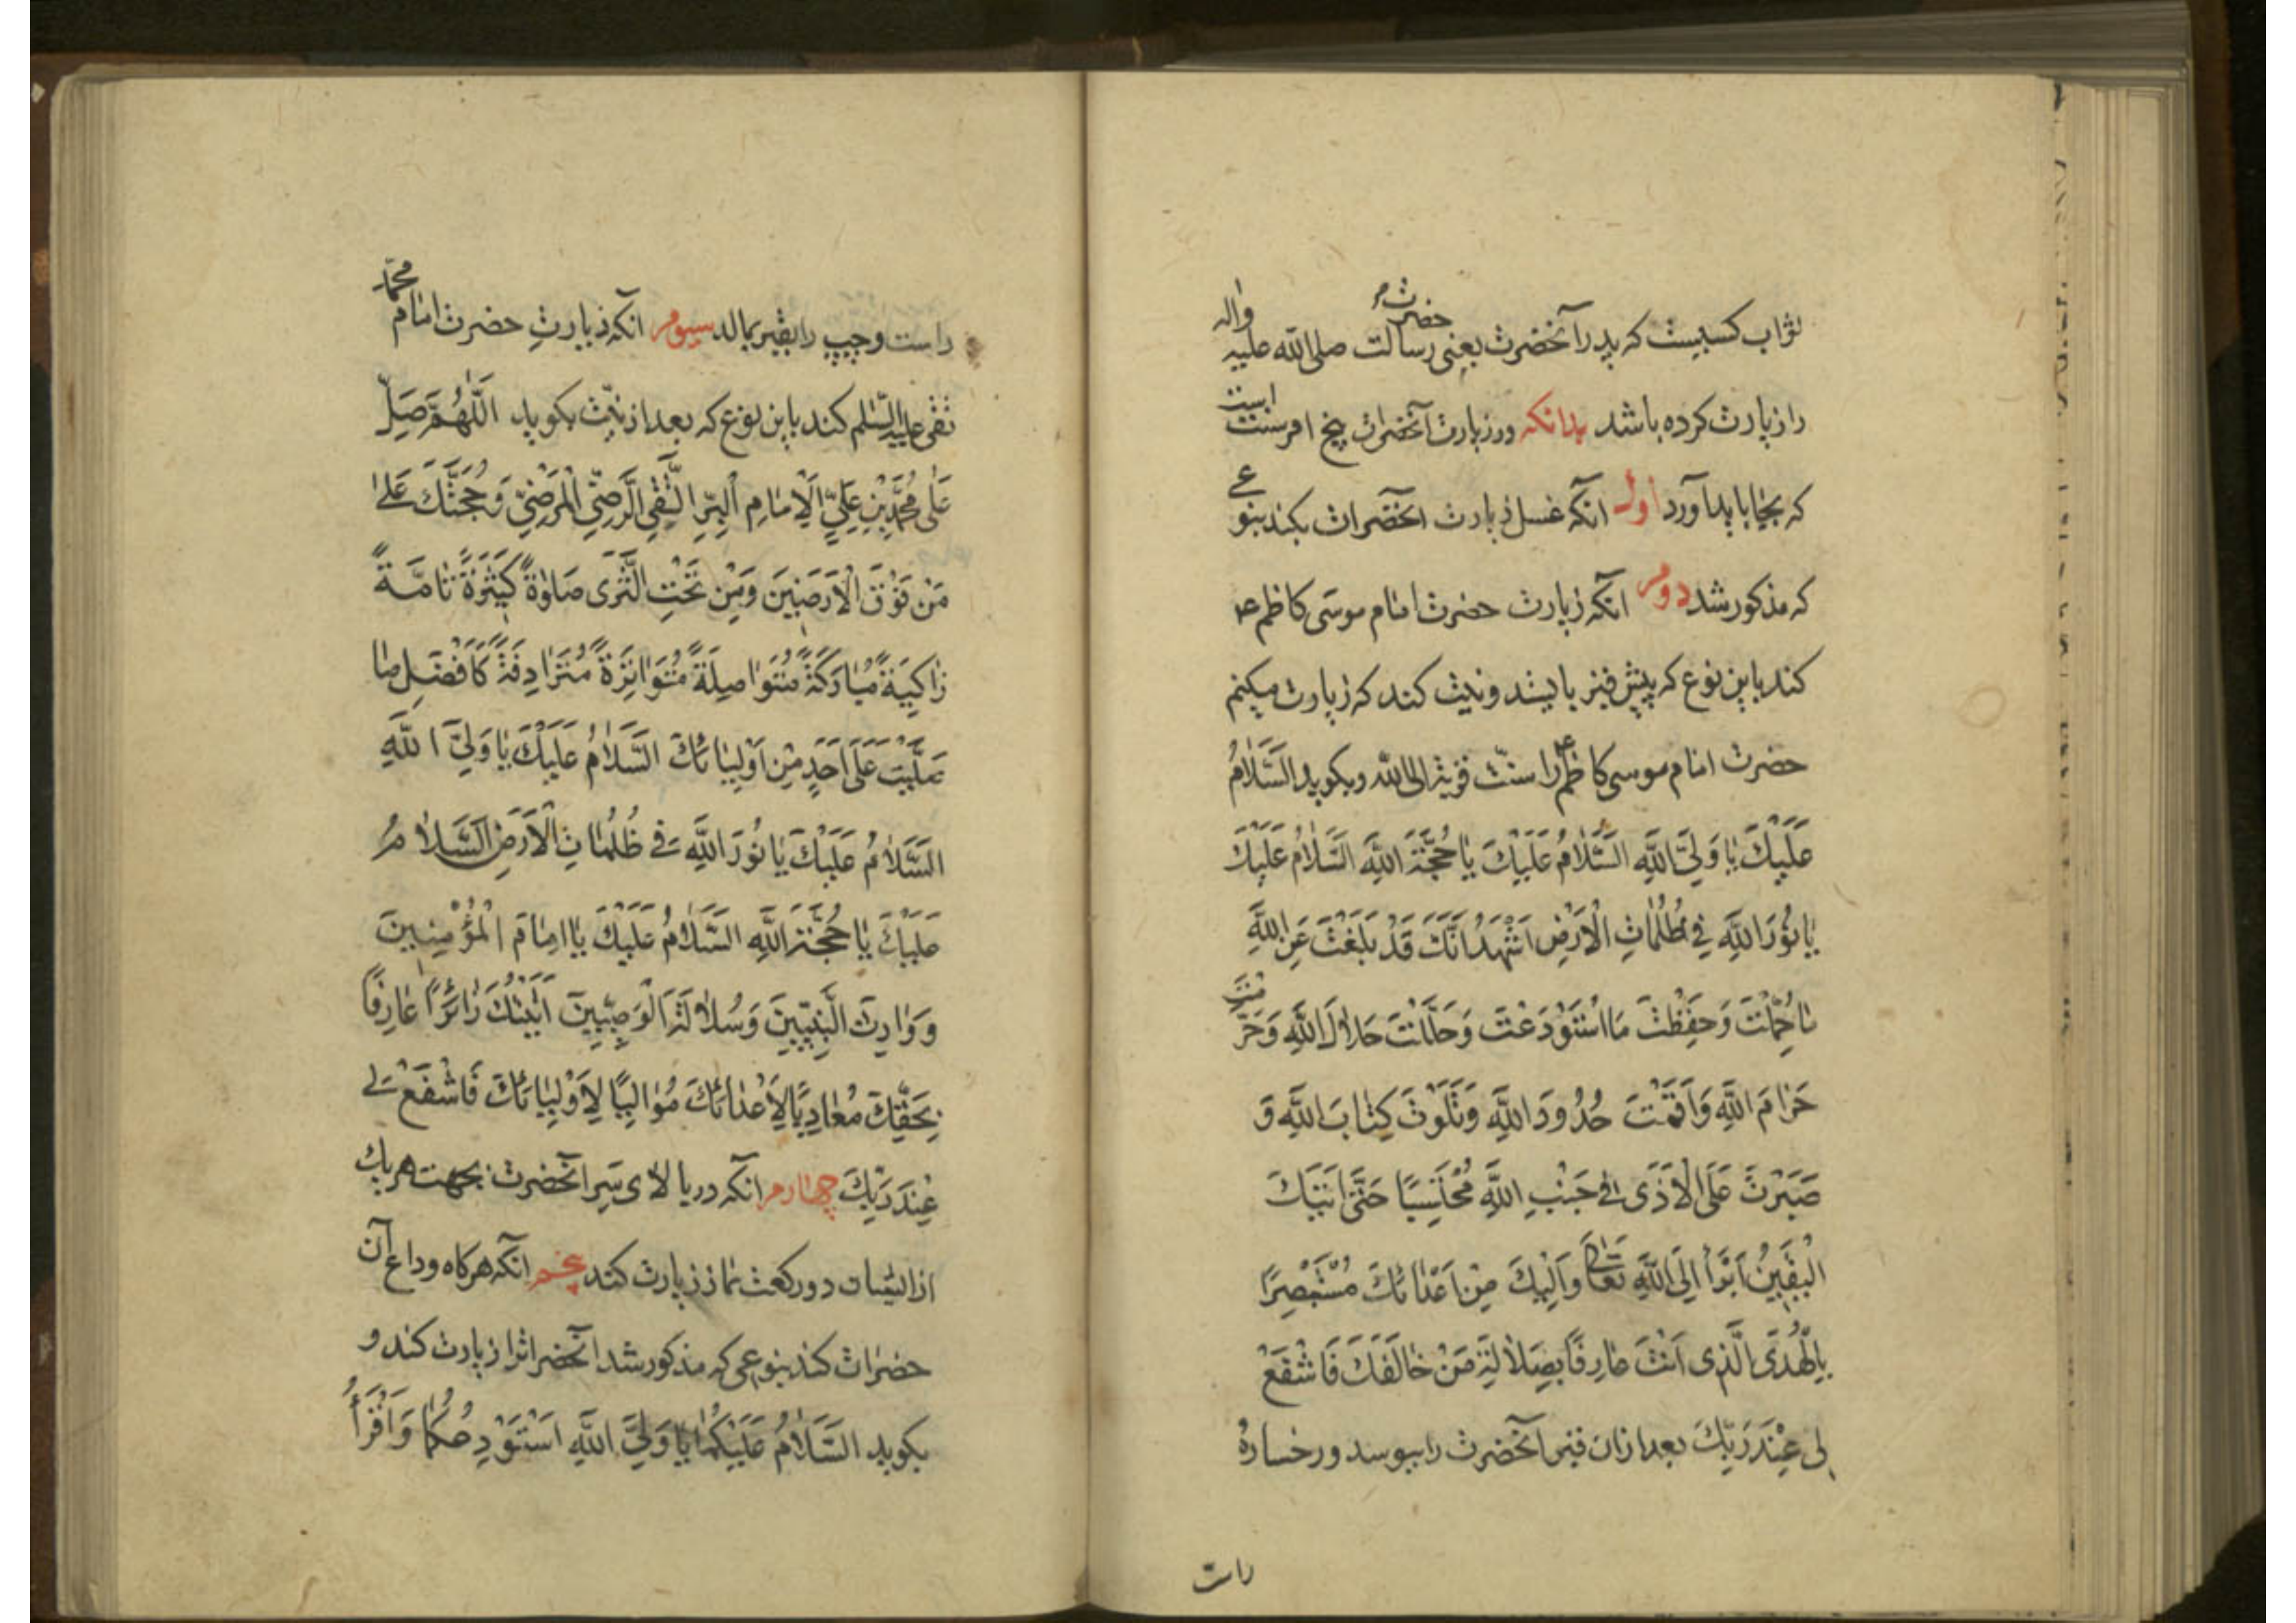 ثواب کسیست که پدر آنحضرت یعنی حضرت رسالت صلی الله علیه واله
را زیارت کرده باشد بدانکه در زیارت آنحضرات پنج امر سنت است
که بجا باید آورد اول آنکه غسل زیارت آنحضرات بکند بنوعی
که مذکور شد دوم آنکه زیارت حضرت امام موسی کاظم ع
کند باین نوع که پیش قبر بایستد و نیت کند که زیارت میکنم
حضرت امام موسی کاظم ع را سنت قربة الی الله و بکوید السَّلَامُ
عَلَيْكَ يَا وَلِيَّ اللَّهِ السَّلَامُ عَلَيْكَ يَا حُجَّةَ اللَّهِ السَّلَامُ عَلَيْكَ
يَا نُورَ اللَّهِ فِي ظُلُمَاتِ الْأَرْضِ اَشْهَدُ اَنَّكَ قَدْ بَلَّغْتَ عَنِ اللَّهِ
مَا حُمِّلْتَ وَحَفِظْتَ مَا اسْتُوْدِعْتَ وَحَلَّلْتَ حَلَالَ اللَّهِ وَحَرَّمْتَ
حَرَامَ اللَّهِ وَاَقَمْتَ حُدُودَ اللَّهِ وَتَلَوْتَ كِتَابَ اللَّهِ وَ
صَبَرْتَ عَلَى الْاَذَى فِي جَنْبِ اللَّهِ مُحْتَسِبًا حَتَّى اَتَيٰكَ
الْيَقِينُ اَبْرَأُ اِلَى اللَّهِ تَعَالَى وَاِلَيْكَ مِنْ اَعْدَائِكَ مُسْتَبْصِرًا
بِالْهُدَى الَّذِي اَنْتَ عَارِفًا بِضَلَالَةِ مَنْ خَالَفَكَ فَاشْفَعْ
لِي عِنْدَ رَبِّكَ بعد از ان قبر آنحضرت را ببوسد و رخساره
راست
راست و چپ را بقبر بمالد سیوم آنکه زیارت حضرت امام محمد
تقی علیه السلم کند باین نوع که بعد از نیت بکوید اَللَّهُمَّ صَلِّ
عَلَى مُحَمَّدِ بْنِ عَلِيٍّ الْاِمَامِ الْبَرِّ التَّقِيِّ الرَّضِيِّ الْمَرْضِيِّ وَحُجَّتِكَ عَلَى
مَنْ فَوْقَ الْاَرَضِينَ وَمَنْ تَحْتَ الثَّرَى صَلٰوةً كَثِيْرَةً تَامَّةً
زَاكِيَةً مُبَارَكَةً مُتَوَاصِلَةً مُتَوَاتِرَةً مُتَرَادِفَةً كَاَفْضَلِ مَا
صَلَّيْتَ عَلَى اَحَدٍ مِنْ اَوْلِيَائِكَ السَّلَامُ عَلَيْكَ يَا وَلِيَّ اللَّهِ
السَّلَامُ عَلَيْكَ يَا نُورَ اللَّهِ فِي ظُلُمَاتِ الْاَرْضِ السَّلَامُ
عَلَيْكَ يَا حُجَّةَ اللَّهِ السَّلَامُ عَلَيْكَ يَا اِمَامَ الْمُؤْمِنِينَ
وَوَارِثَ النَّبِيِّينَ وَسُلَالَةَ الْوَصِيِّينَ اَتَيْتُكَ زَائِرًا عَارِفًا
بِحَقِّكَ مُعَادِيًا لِاَعْدَائِكَ مُوَالِيًا لِاَوْلِيَائِكَ فَاشْفَعْ لِي
عِنْدَ رَبِّكَ چهارم آنکه در بالای سر آنحضرت بجهت هر یک
از ایشان دو رکعت نماز زیارت کند پنجم آنکه هرکاه وداع آن
حضرات کند بنوعی که مذکور شد آنحضراترا زیارت کند و
بکوید السَّلَامُ عَلَيْكُمَا يَا وَلِيَّيِ اللَّهِ اَسْتَوْدِعُكُمَا وَاَقْرَأُ